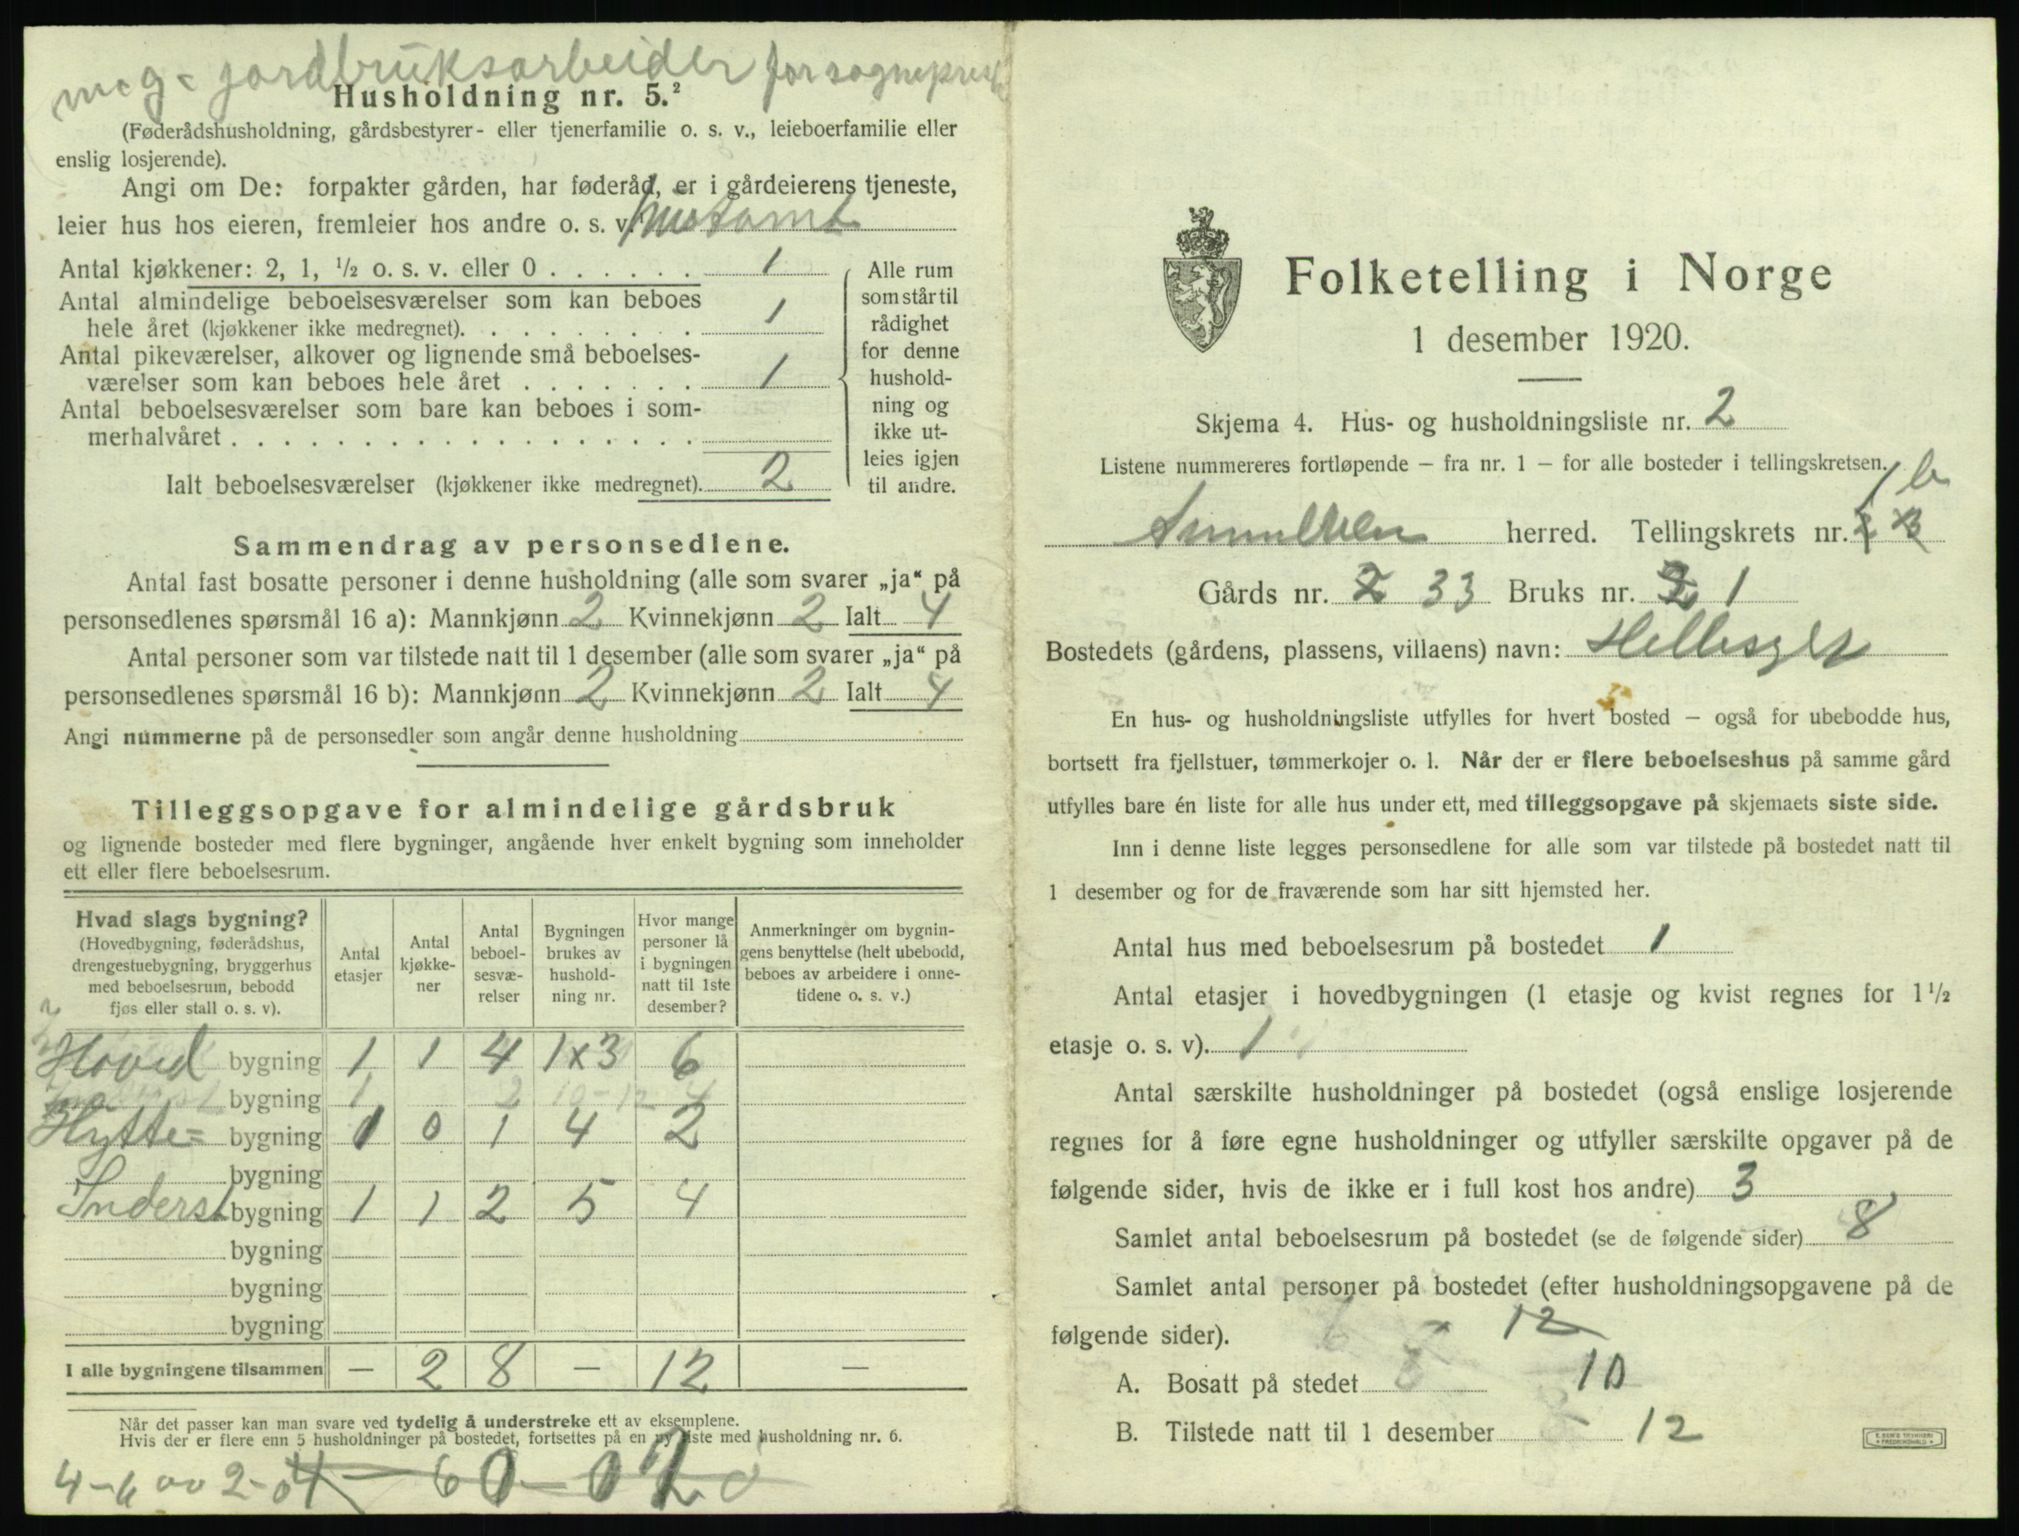 m. g. jordbruksarbeider for sogneprest
Husholdning nr. 5.²
(Føderådshusholdning, gårdsbestyrer- eller tjenerfamilie o. s. v., leieboerfamilie eller
enslig losjerende).
Angi om De: forpakter gården, har føderåd, er i gårdeierens tjeneste,
leier hus hos eieren, fremleier hos andre o. s. v.
Antal kjøkkener: 2, 1, ½ o. s. v. eller 0 . . . . . . 1
Antal almindelige beboelsesværelser som kan beboes
hele året (kjøkkener ikke medregnet). . . . . . . . . 1
Antal pikeværelser, alkover og lignende små beboelses-
værelser som kan beboes hele året . . . . . . . 1
Antal beboelsesværelser som bare kan beboes i som-
merhalvåret . . . . . . . . . . . . . . . . . .
Ialt beboelsesværelser (kjøkkener ikke medregnet). 2
Alle rum
som står til
rådighet
for denne
hushold-
ning og
ikke ut-
leies igjen
til andre.
Sammendrag av personsedlene.
Antal fast bosatte personer i denne husholdning (alle som svarer „ja“ på
personsedlenes spørsmål 16 a): Mannkjønn 2 Kvinnekjønn 2 Ialt 4
Antal personer som var tilstede natt til 1 desember (alle som svarer „ja“ på
personsedlenes spørsmål 16 b): Mannkjønn 2 Kvinnekjønn 2 Ialt 4
Angi nummerne på de personsedler som angår denne husholdning
Tilleggsopgave for almindelige gårdsbruk
og lignende bosteder med flere bygninger, angående hver enkelt bygning som inneholder
ett eller flere beboelsesrum.
Hvad slags bygning?
(Hovedbygning, føderådshus,
drengestuebygning, bryggerhus
med beboelsesrum, bebodd
fjøs eller stall o. s. v).
Antal
etasjer
Antal
kjøkke-
ner
Antal
beboel-
sesvæ-
relser
Bygningen
brukes av
hushold-
ning nr.
Hvor mange
personer lå
i bygningen
natt til 1ste
desember?
Anmerkninger om bygnin-
gens benyttelse (helt ubebodd,
beboes av arbeidere i onne-
tidene o. s. v.)
Hoved bygning 1 1 4 1x3 6
bygning 1 2 10-12 4
Hytte= bygning 1 0 1 4 2
bygning
Inderst bygning 1 1 2 5 4
bygning
bygning
bygning
I alle bygningene tilsammen — 2 8 — 12 —
Når det passer kan man svare ved tydelig å understreke ett av eksemplene.
Hvis der er flere enn 5 husholdninger på bostedet, fortsettes på en ny liste med husholdning nr. 6.
Folketelling i Norge
1 desember 1920.
Skjema 4. Hus- og husholdningsliste nr. 2
Listene nummereres fortløpende – fra nr. 1 – for alle bosteder i tellingskretsen.
1 b
Sunnelven herred. Tellingskrets nr. 2 3
Gårds nr. 2 33 Bruks nr. 2 1
Bostedets (gårdens, plassens, villaens) navn: Hellesylt
En hus- og husholdningsliste utfylles for hvert bosted – også for ubebodde hus,
bortsett fra fjellstuer, tømmerkojer o. l. Når der er flere beboelseshus på samme gård
utfylles bare én liste for alle hus under ett, med tilleggsopgave på skjemaets siste side.
Inn i denne liste legges personsedlene for alle som var tilstede på bostedet natt til
1 desember og for de fraværende som har sitt hjemsted her.
Antal hus med beboelsesrum på bostedet 1
Antal etasjer i hovedbygningen (1 etasje og kvist regnes for 1½
etasje o. s. v). 1
Antal særskilte husholdninger på bostedet (også enslige losjerende
regnes for å føre egne husholdninger og utfyller særskilte opgaver på de
følgende sider, hvis de ikke er i full kost hos andre) 3
Samlet antal beboelsesrum på bostedet (se de følgende sider) 8
Samlet antal personer på bostedet (efter husholdningsopgavene på de
følgende sider). 12
A. Bosatt på stedet 8 10
B. Tilstede natt til 1 desember 12